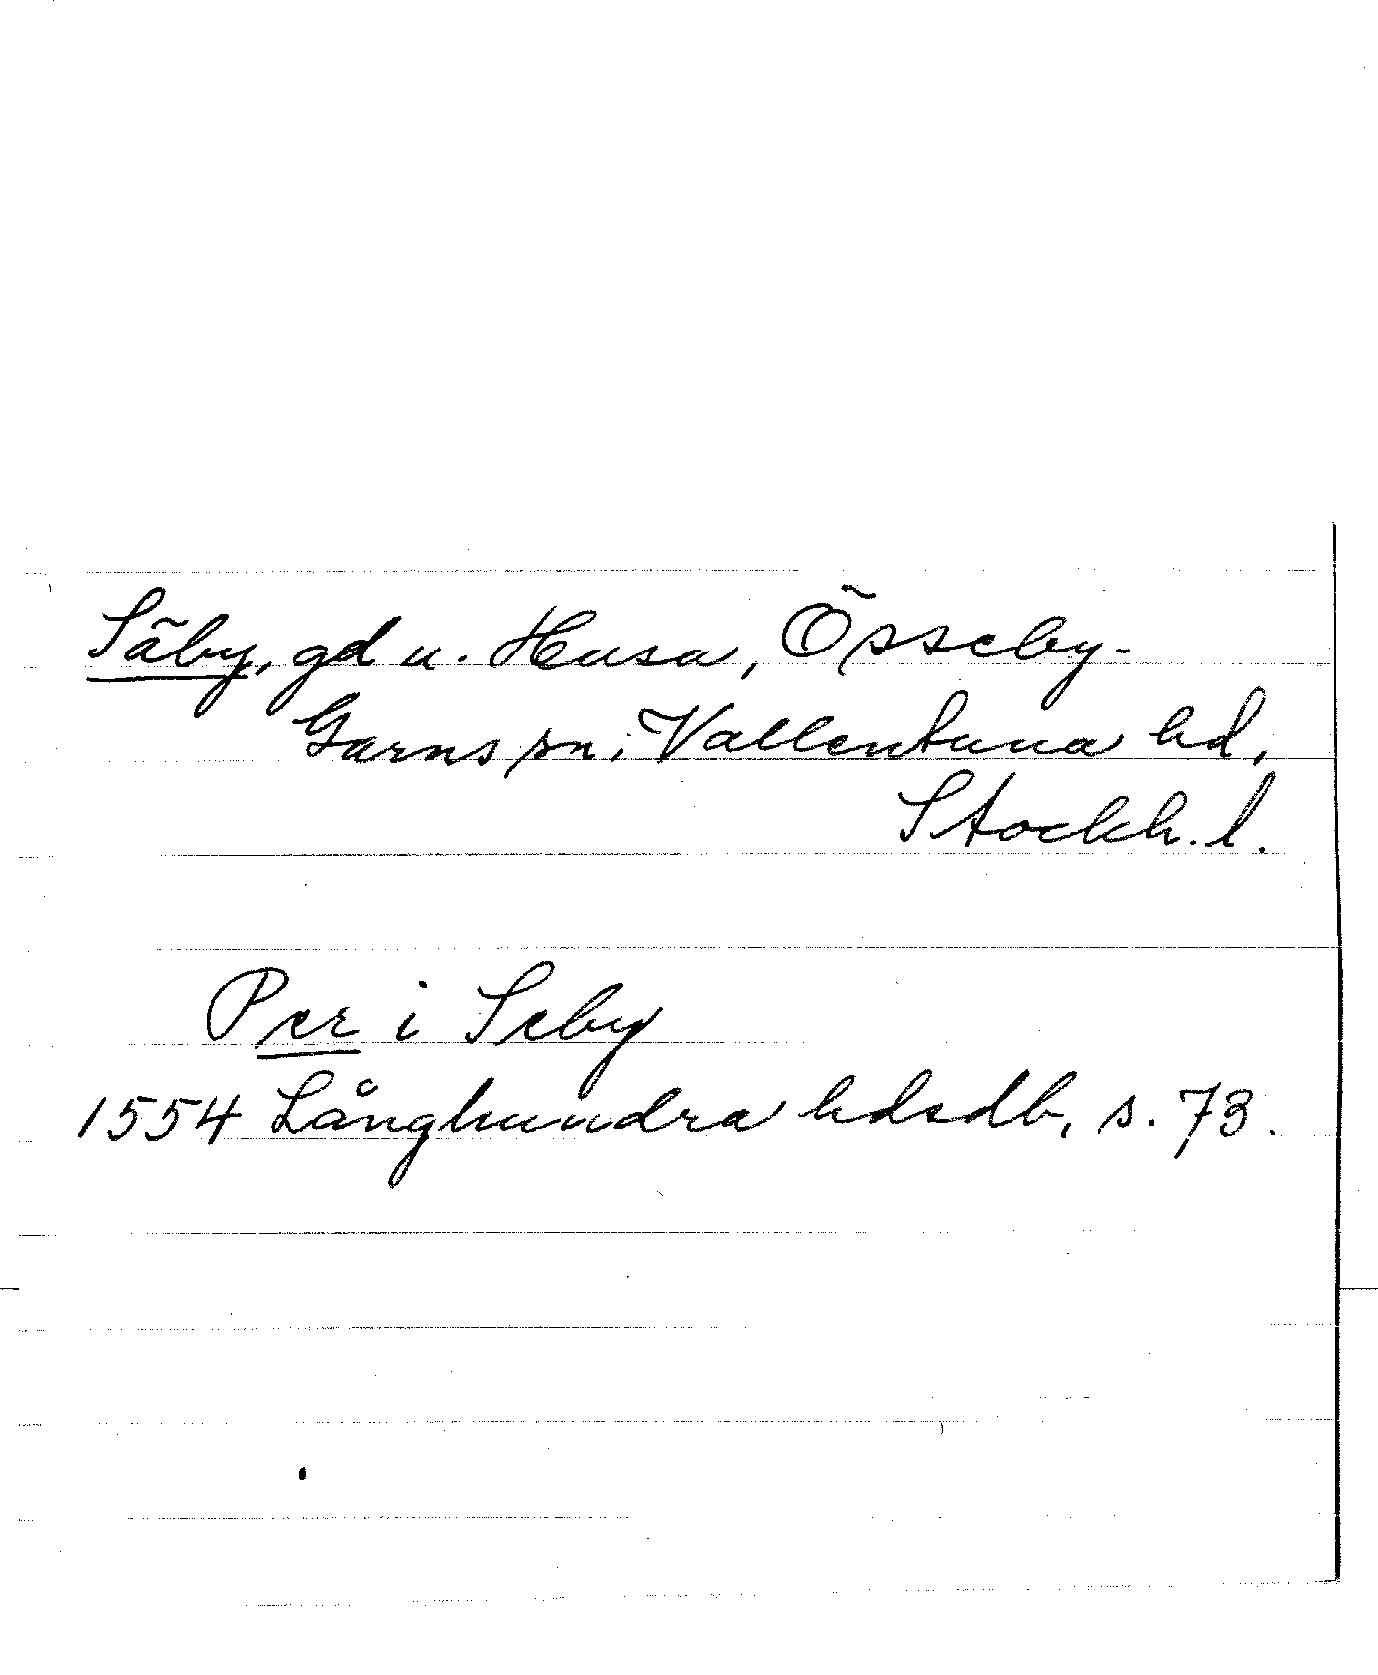 Säby, gd u. Husa, Össeby-
Garns sn, Vallentuna hd,
Stockh. l.
Per i Seby
1554 Långhundra hdsdb, s. 73.